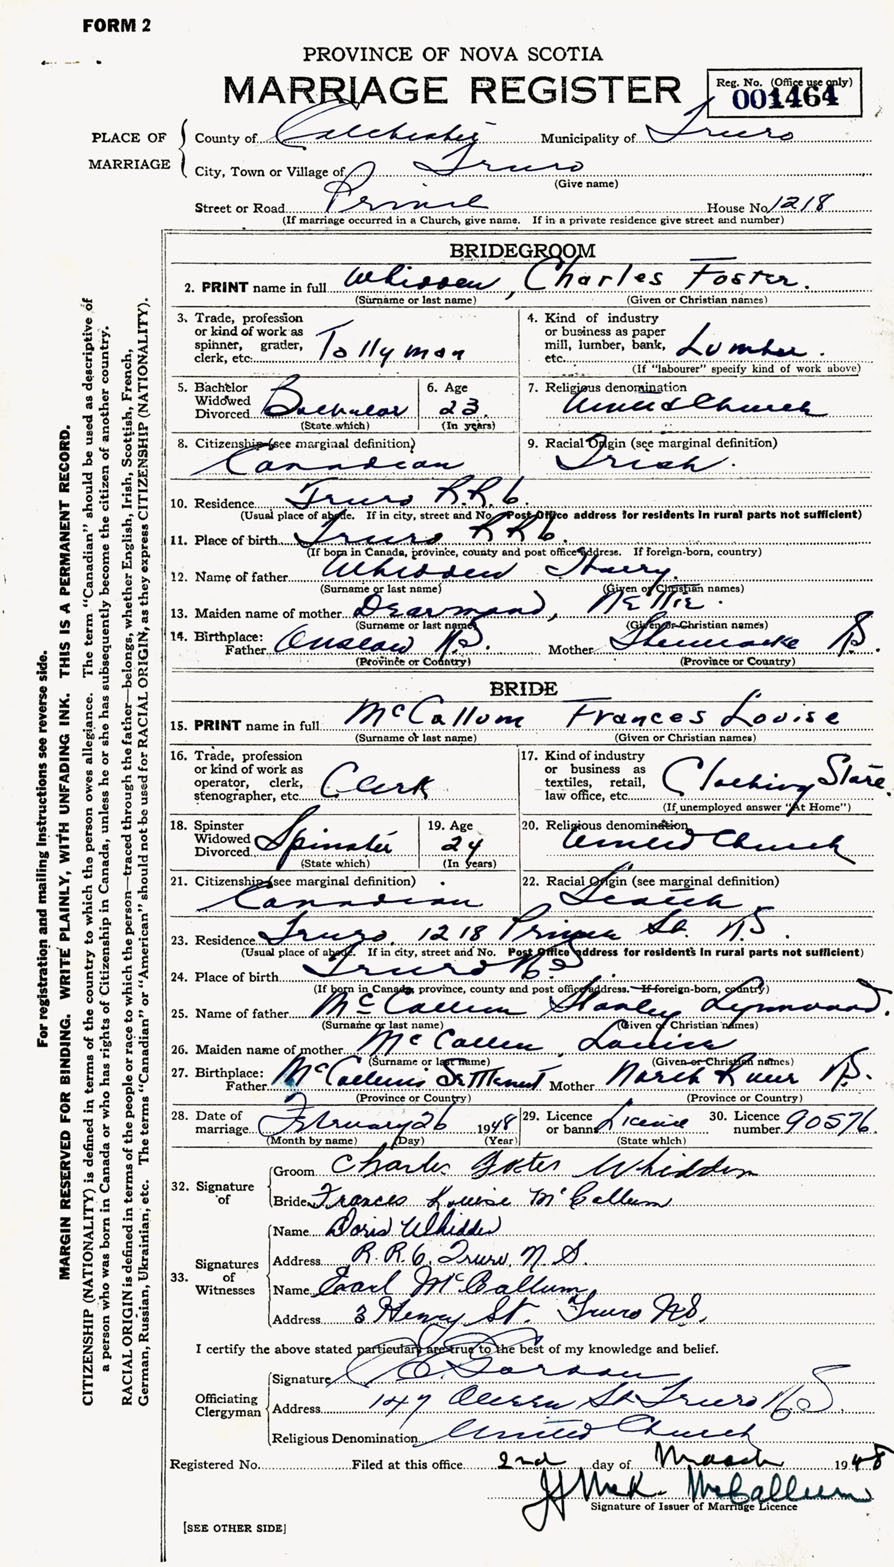 FORM 2
PROVINCE OF NOVA SCOTIA
MARRIAGE REGISTER
Reg. No. (Office use only)
001464
PLACE OF MARRIAGE
County of Colchester Municipality of Truro
City, Town or Village of Truro
(Give name)
Street or Road Prince House No. 1218
(If marriage occurred in a Church, give name. If in a private residence give street and number)
BRIDEGROOM
2. PRINT name in full Whidden, Charles Foster.
(Surname or last name) (Given or Christian names)
3. Trade, profession or kind of work as spinner, grader, clerk, etc. Tallyman
4. Kind of industry or business as paper mill, lumber, bank, etc. Lumber.
(If "labourer" specify kind of work above)
5. Bachelor Widowed Divorced Bachelor
(State which)
6. Age 23.
(In years)
7. Religious denomination United Church
8. Citizenship (see marginal definition) Canadian
9. Racial Origin (see marginal definition) Irish.
10. Residence Truro R.R.6.
(Usual place of abode. If in city, street and No. Post Office address for residents in rural parts not sufficient)
11. Place of birth Truro RR6.
(If born in Canada, province, county and post office address. If foreign-born, country)
12. Name of father Whidden Harry.
(Surname or last name) (Given or Christian names)
13. Maiden name of mother Dearmond, Nettie.
(Surname or last name) (Given or Christian names)
14. Birthplace: Father Onslow N.S. Mother Shemacke N.S.
(Province or Country) (Province or Country)
BRIDE
15. PRINT name in full McCallum Frances Louise
(Surname or last name) (Given or Christian names)
16. Trade, profession or kind of work as operator, clerk, stenographer, etc. Clerk
17. Kind of industry or business as textiles, retail, law office, etc. Clothing Store.
(If unemployed answer "At Home")
18. Spinster Widowed Divorced Spinster
(State which)
19. Age 24
(In years)
20. Religious denomination United Church
21. Citizenship (see marginal definition) Canadian
22. Racial Origin (see marginal definition) Scotch
23. Residence Truro, 1218 Prince St. N.S.
(Usual place of abode. If in city, street and No. Post Office address for residents in rural parts not sufficient)
24. Place of birth Truro N.S.
(If born in Canada province, county and post office address. If foreign-born, country)
25. Name of father McCallum Stanley Lynwood.
(Surname or last name) (Given or Christian names)
26. Maiden name of mother McCallum, Louisa
(Surname or last name) (Given or Christian names)
27. Birthplace: Father McCallums Settlement Mother North River N.S.
(Province or Country) (Province or Country)
28. Date of marriage, February 26 1948
(Month by name) (Day) (Year)
29. Licence or banns License
(State which)
30. Licence number 90576.
32. Signature of
Groom Charles Foster Whidden
Bride Frances Louise McCallum
33. Signatures of Witnesses
Name Doris Whidden
Address R.R.6, Truro, N.S.
Name Earl McCallum
Address 3 Henry St. Truro N.S.
I certify the above stated particulars are true to the best of my knowledge and belief.
Officiating Clergyman
Signature
Address 147 Queen St Truro N.S.
Religious Denomination United Church
Registered No. Filed at this office 2nd day of March 1948
McCallum
Signature of Issuer of Marriage Licence
[SEE OTHER SIDE]
For registration and mailing instructions see reverse side.
MARGIN RESERVED FOR BINDING. WRITE PLAINLY, WITH UNFADING INK. THIS IS A PERMANENT RECORD.
CITIZENSHIP (NATIONALITY) is defined in terms of the country to which the person owes allegiance. The term "Canadian" should be used as descriptive of
a person who was born in Canada or who has rights of Citizenship in Canada, unless he or she has subsequently become the citizen of another country.
RACIAL ORIGIN is defined in terms of the people or race to which the person—traced through the father—belongs, whether English, Irish, Scottish, French,
German, Russian, Ukrainian, etc. The terms "Canadian" or "American" should not be used for RACIAL ORIGIN, as they express CITIZENSHIP (NATIONALITY).